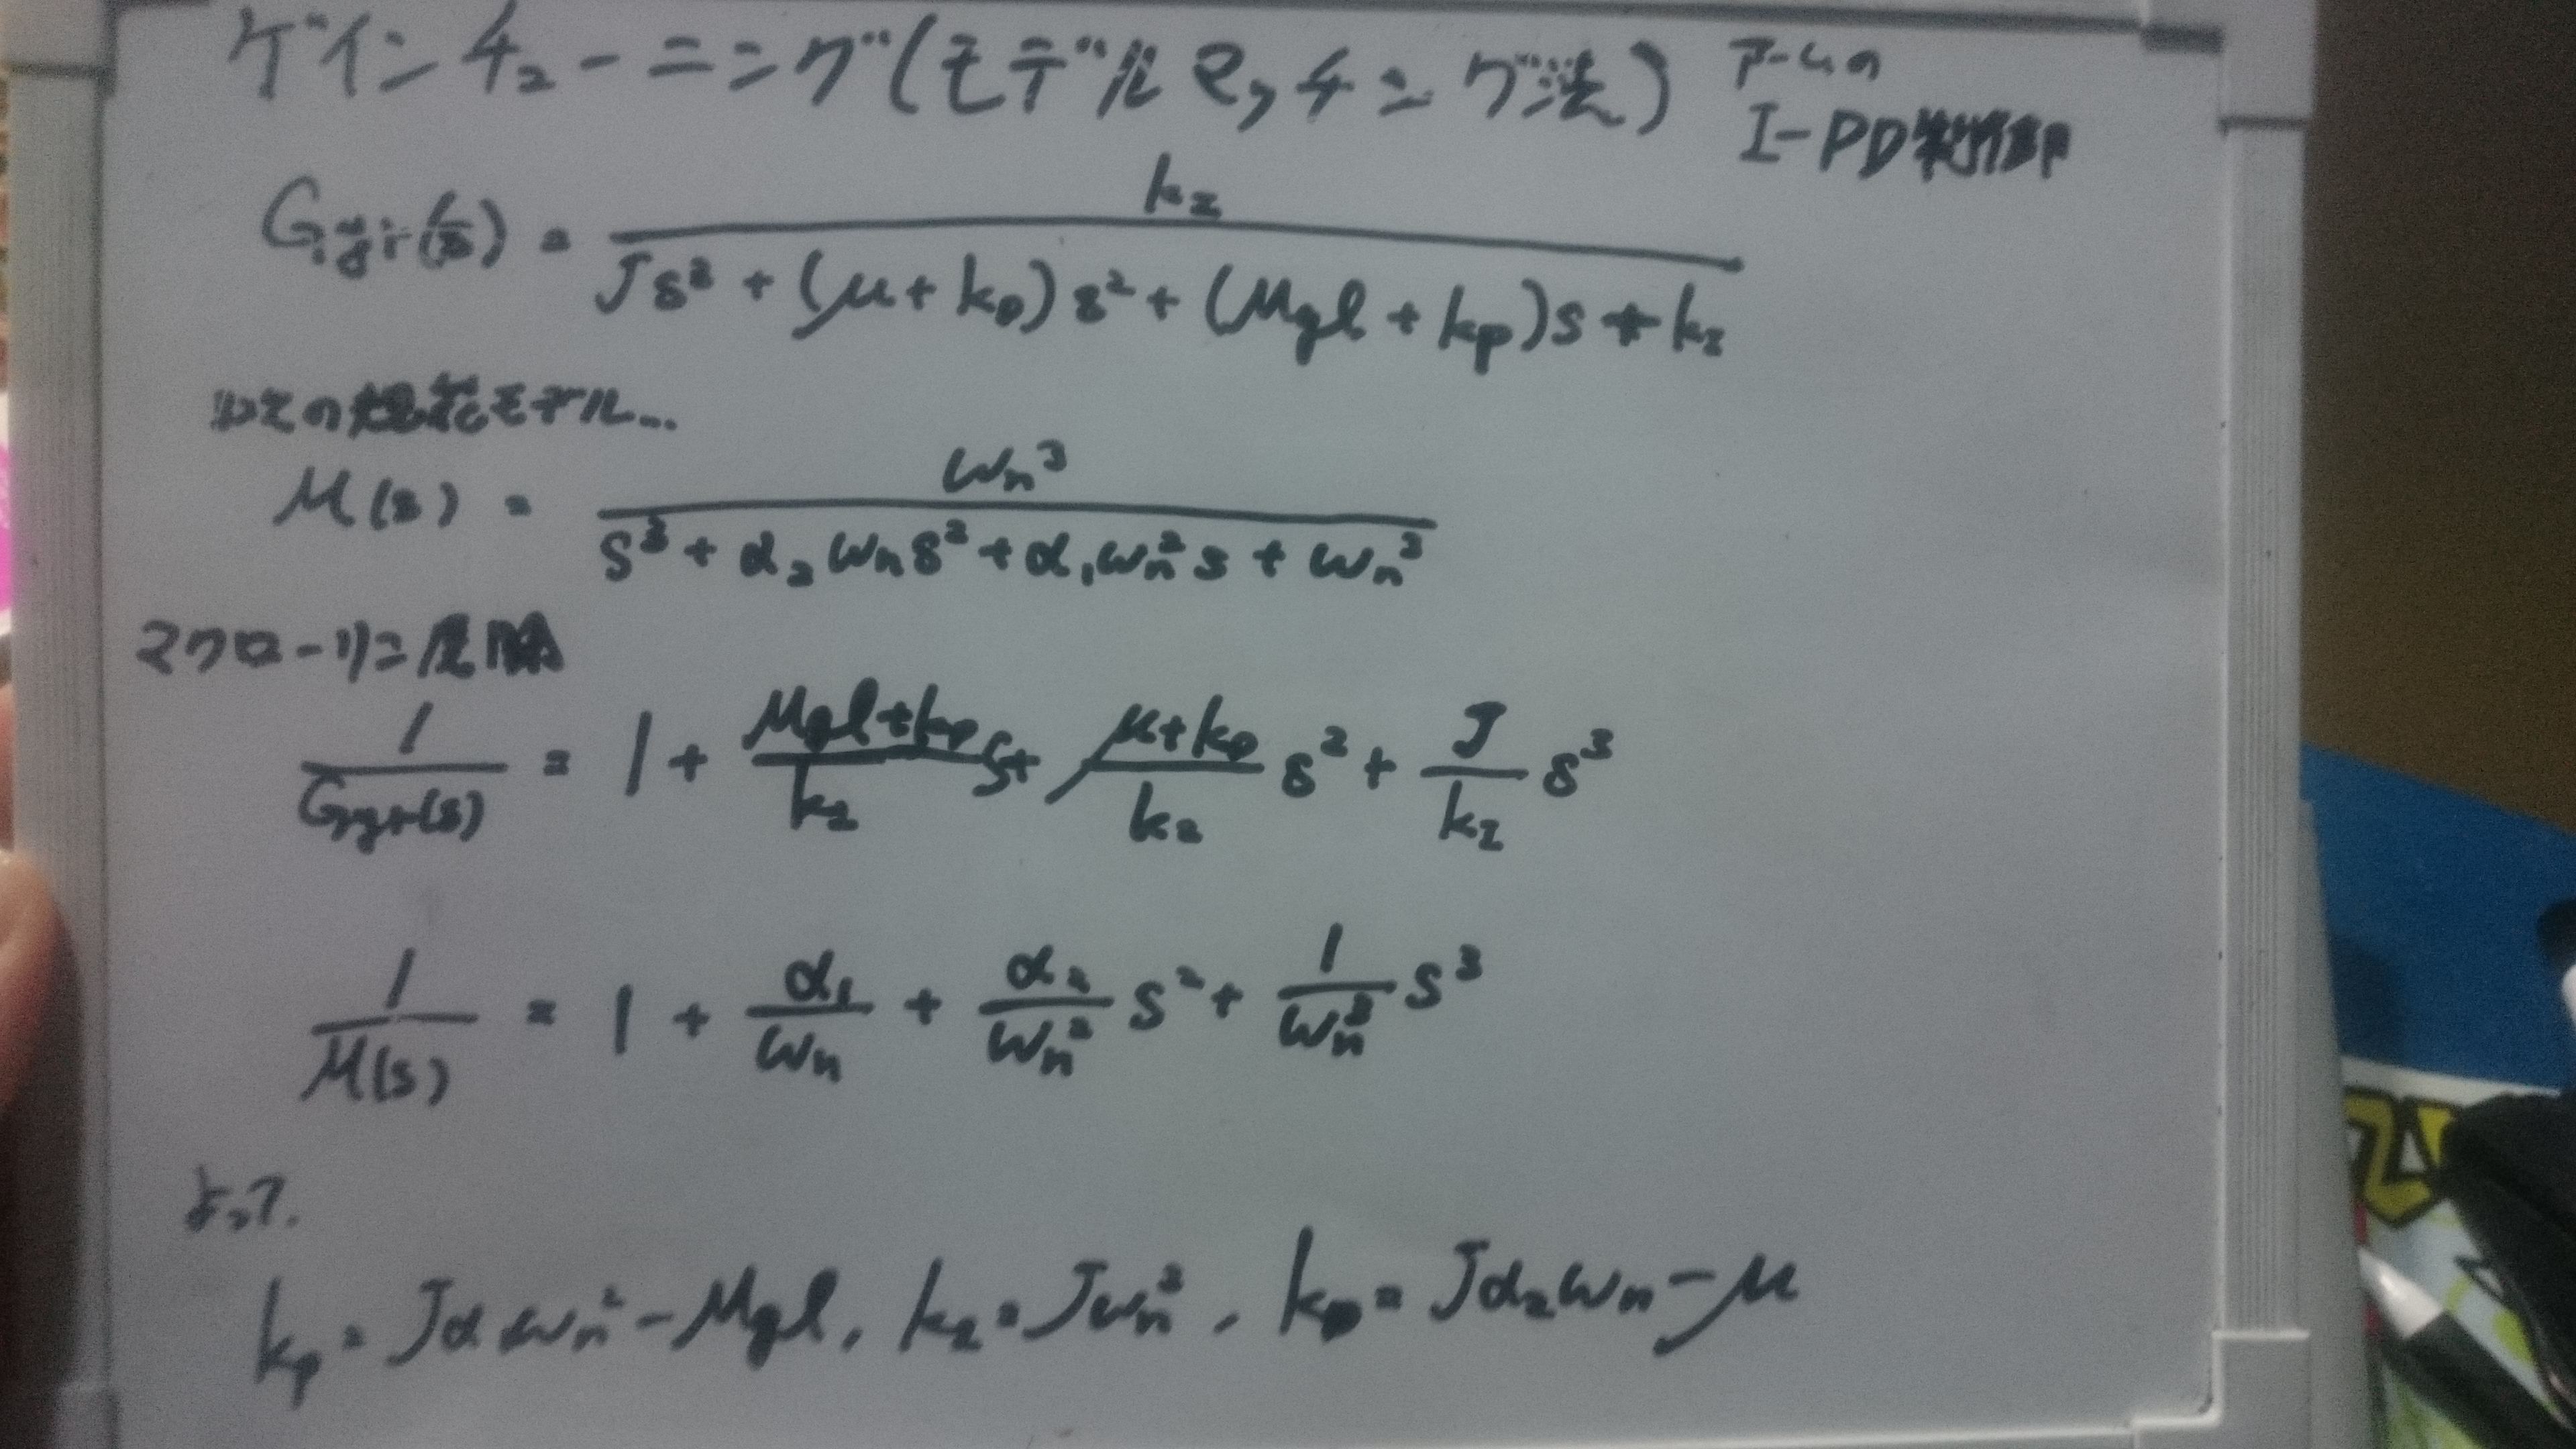 ゲインチューニング(モデルマッチング法) アームの
I-PD制御
Gyr(s) = kI / (Js² + (μ+kD)s² + (Mgl+kp)s + kI)
3次の規範モデル...
M(s) = ωn³ / (s³ + α₂ωns² + α₁ωn²s + ωn³)
マクローリン展開
1/Gyr(s) = 1 + (Mgl+kp)/kI s + (μ+kD)/kI s² + J/kI s³
1/M(s) = 1 + α₁/ωn + α₂/ωn² s² + 1/ωn³ s³
よって.
kp = Jα₁ωn² - Mgl, kI = Jωn³, kD = Jα₂ωn - μ